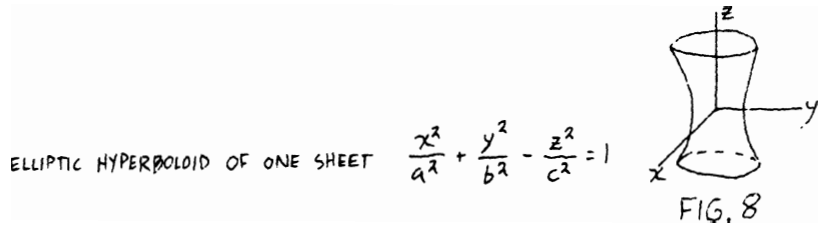 z
y
ELLIPTIC HYPERBOLOID OF ONE SHEET x²/a² + y²/b² - z²/c² = 1
x
FIG. 8